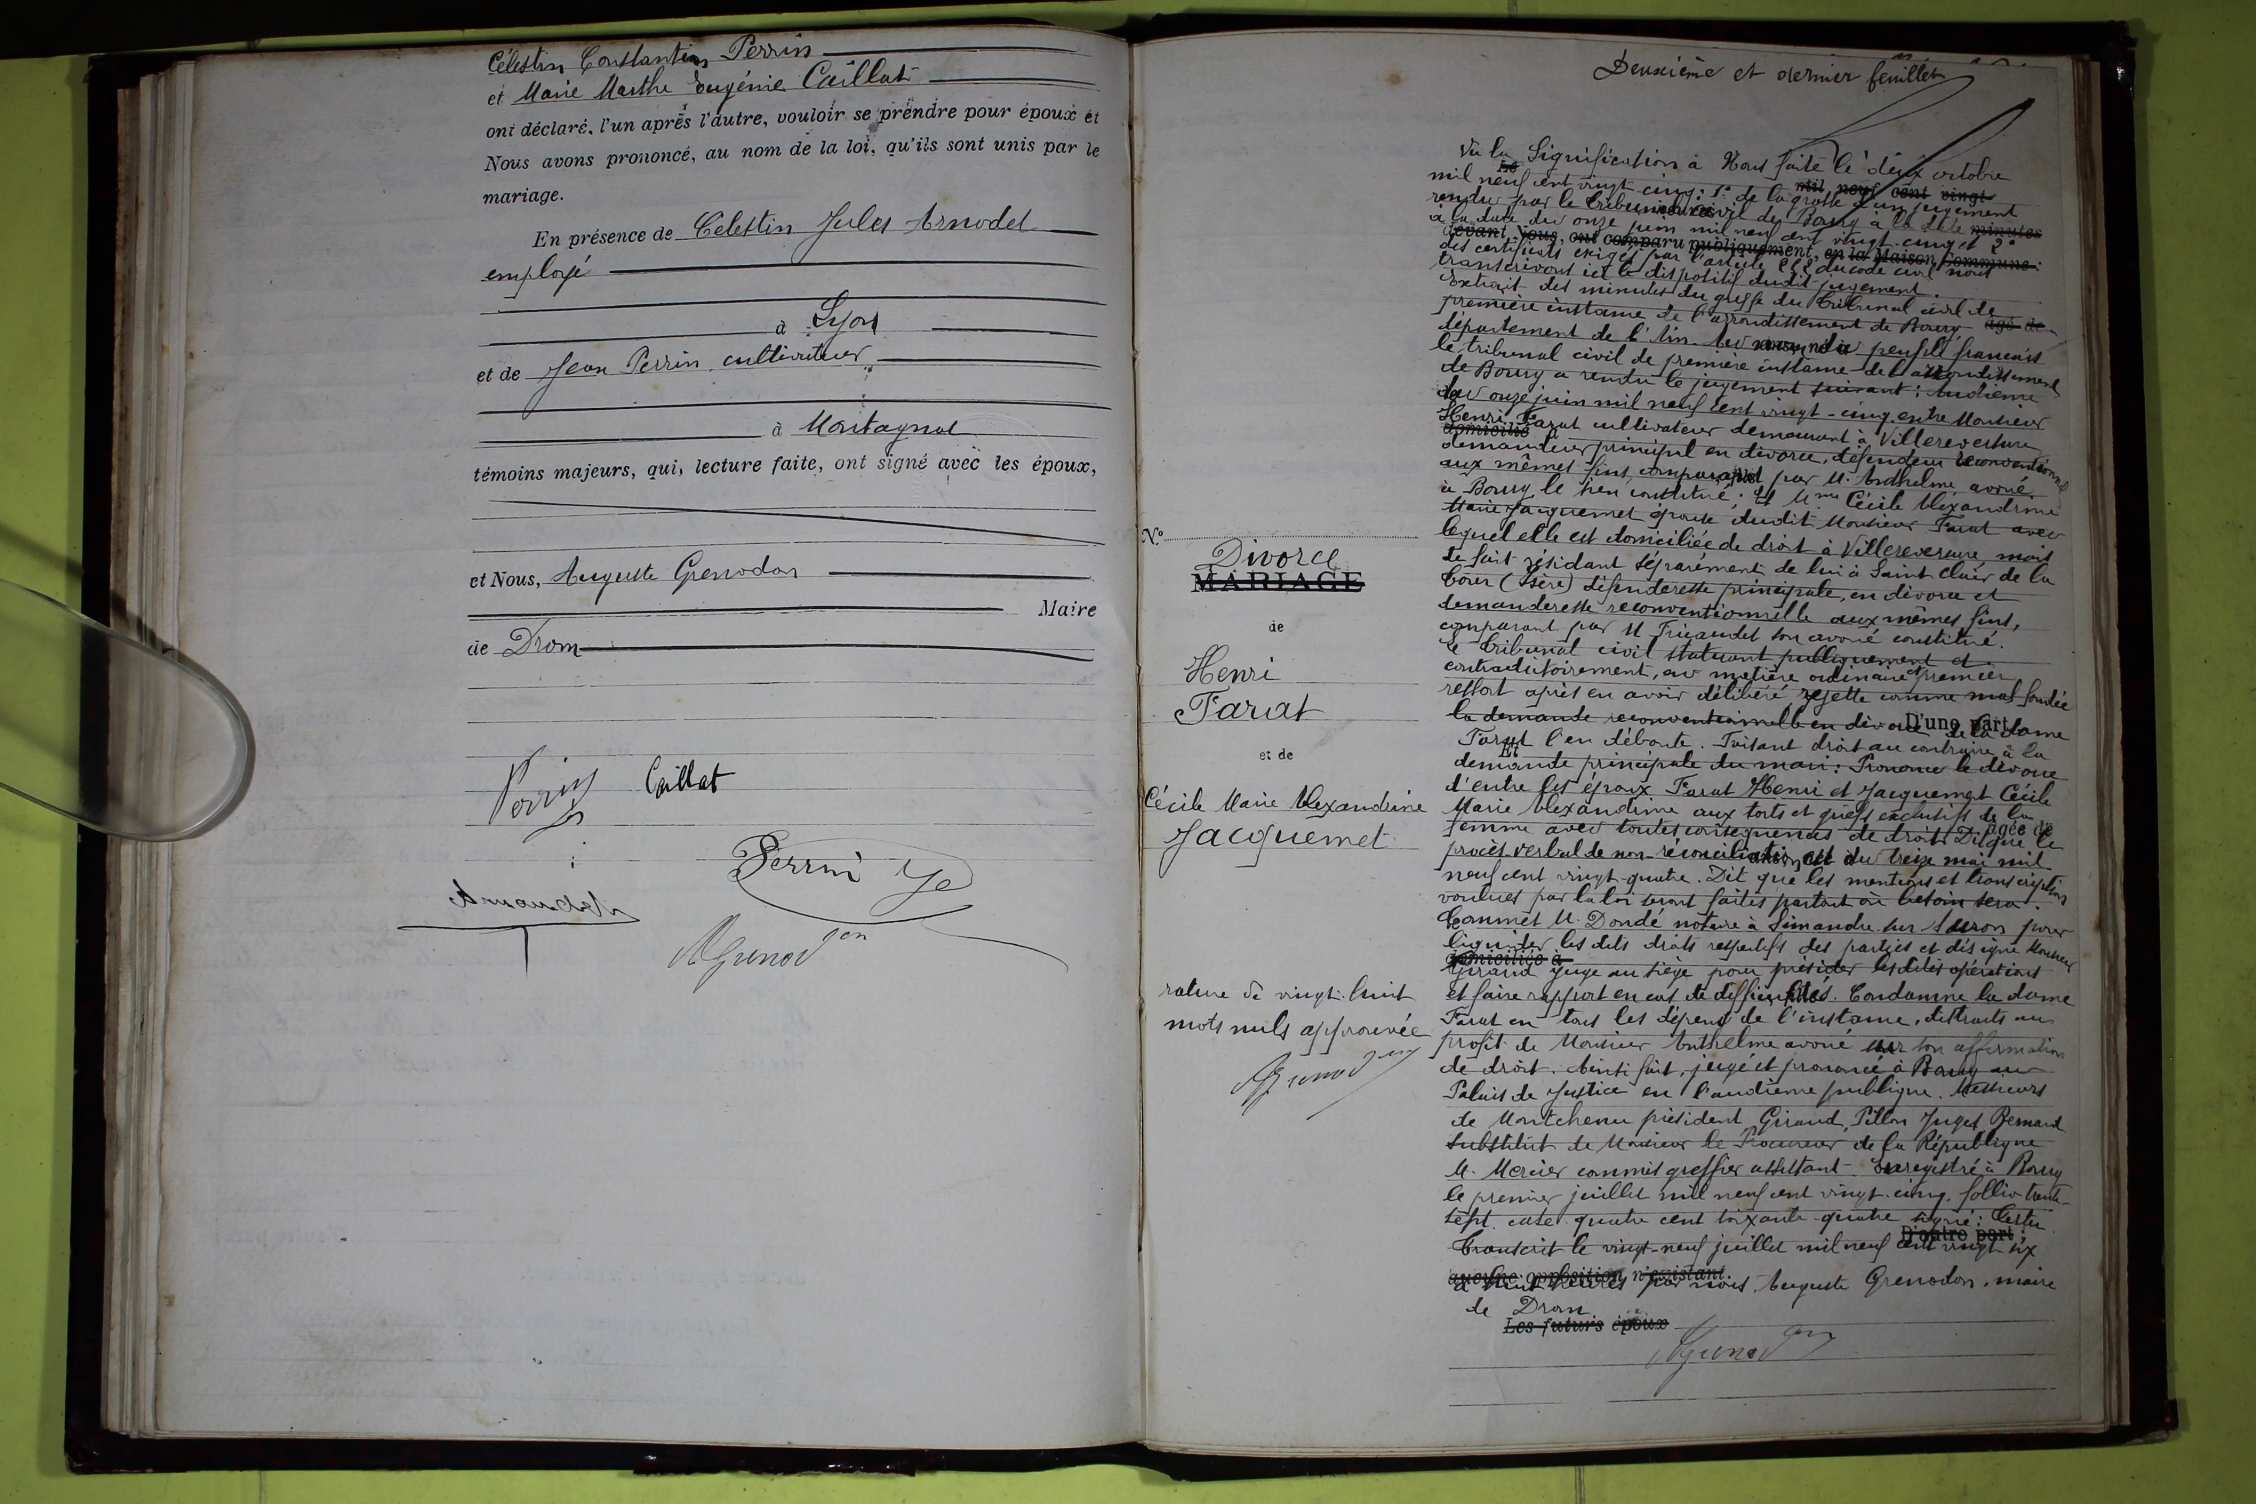 Célestin Constantin Perrin
et Marie Marthe Eugénie Caillat
ont déclaré, l'un après l'autre, vouloir se prendre pour époux et
Nous avons prononcé, au nom de la loi, qu'ils sont unis par le
mariage.
En présence de Celestin Jules Arnodet
employé
à Lyon
et de Jean Perrin cultivateur
à Montagnat
témoins majeurs, qui, lecture faite, ont signé avec les époux,
et Nous, Auguste Grenodon
Maire
de Drom
Perrin Caillat
Perrin
AGrenodon
Deuxième et dernier feuillet
N°
Divorce
MARIAGE
de
Henri
Farat
et de
Cécile Marie Alexandrine
Jacquemet
rature de vingt-huit
mots nuls approuvée
AGrenodon
Vu la Signification à Nous faite le deux octobre
mil neuf cent vingt cinq: 1° de la grosse d'un jugement
rendu par le tribunal civil de Bourg à la date
à la date du onze juin mil neuf cent vingt-cinq et 2°
des certificats exigés par l'article 252 du code civil nous
transcrivons ici le dispositif dudit jugement.
Extrait des minutes du greffe du Tribunal civil de
première instance de l'arrondissement de Bourg
département de l'Ain. Au nom du peuple français
le tribunal civil de première instance de l'arrondissement
de Bourg a rendu le jugement suivant: Audience
du onze juin mil neuf cent vingt-cinq entre Monsieur
Henri Farat cultivateur demeurant à Villereversure
demandeur principal en divorce, défendeur reconventionnel
aux mêmes fins, comparant par M. Anthelme avoué
à Bourg le sien constitué. Et Mme Cécile Alexandrine
Marie Jacquemet épouse dudit Monsieur Farat avec
lequel elle est domiciliée de droit à Villereversure mais
de fait résidant séparément de lui à Saint Clair de la
Tour (Isère) défenderesse principale, en divorce et
demanderesse reconventionnelle aux mêmes fins,
comparant par M Fricaudet son avoué constitué.
Le Tribunal civil statuant publiquement et
contradictoirement, en matière ordinaire et premier
ressort après en avoir délibéré rejette comme mal fondée
la demande reconventionnelle en divorce de la dame
D'une part
Farat l'en déboute. Faisant droit au contraire à la
Et
demande principale du mari: Prononce le divorce
d'entre les époux Farat Henri et Jacquemet Cécile
Marie Alexandrine aux torts et griefs exclusifs de la
femme avec toutes conséquences de droit Dit que le
âgée de
procès-verbal de non-réconciliation est du treize mai mil
neuf cent vingt-quatre. Dit que les mentions et transcriptions
voulues par la loi seront faites partout où besoin sera.
Commet M. Dondé notaire à Simandre sur Suran pour
liquider les dits droits respectifs des parties et désigne Monsieur
domiciliée à
Giraud Juge au siège pour présider lesdites opérations
et faire rapport en cas de difficultés. Condamne la dame
Farat en tous les dépens de l'instance, distraits au
profit de Monsieur Anthelme avoué sur son affirmation
de droit. Ainsi fait, jugé et prononcé à Bourg au
Palais de Justice en l'audience publique. Messieurs
de Montchenu président Giraud, Pillon Juges Bernard
Substitut de Monsieur le Procureur de la République
M. Mercier commis greffier assistant. Enregistré à Bourg
le premier juillet mil neuf cent vingt-cinq. follio trente-
sept case quatre cent soixante-quatre signé:
D'autre part
Transcrit le vingt-neuf juillet mil neuf cent vingt six
aucune opposition n'existant
à neuf heures par nous Auguste Grenodon, maire
de Drom
Les futurs époux
AGrenodon